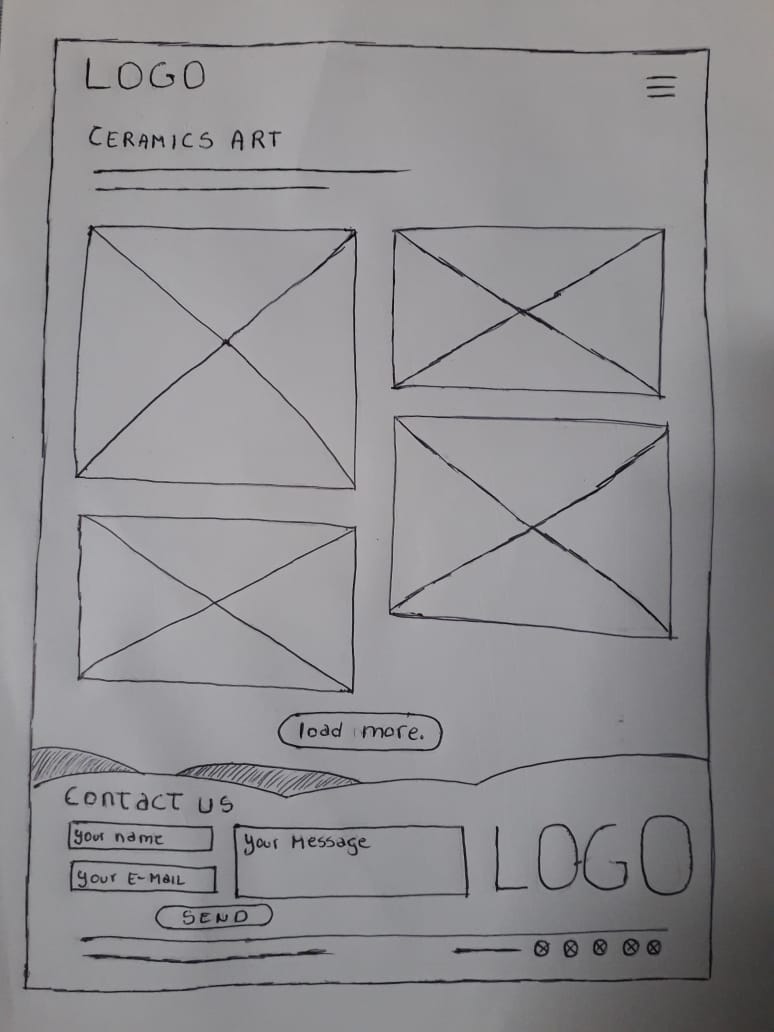 LOGO
CERAMICS ART
load more.
Contact us
your name
your E-MAIL
your Message
SEND
LOGO